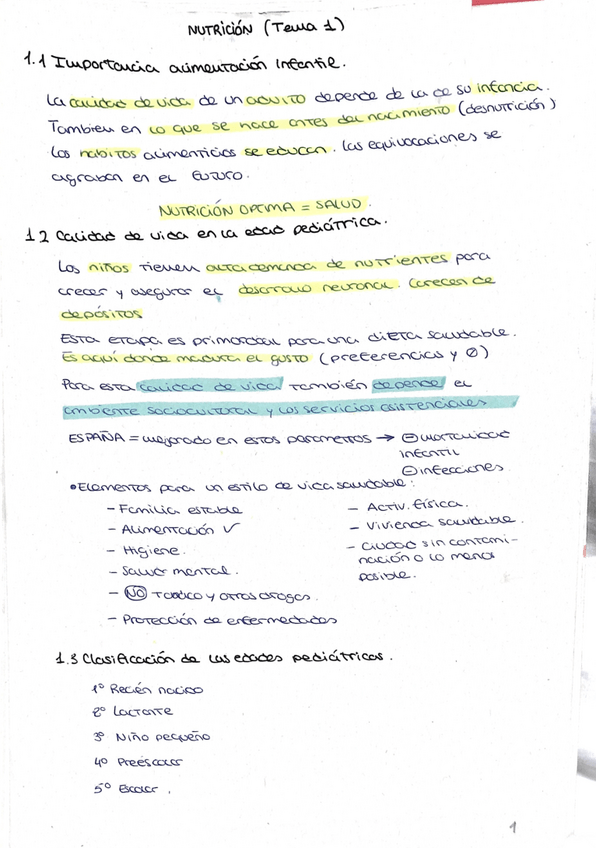 NUTRICIÓN (Tema 1)
1.1 Importancia alimentación infantil.
La calidad de vida de un adulto depende de la de su infancia.
Tambien en lo que se hace antes del nacimiento (desnutrición)
Los hábitos alimenticios se educan. Las equivocaciones se
agravan en el futuro.
NUTRICIÓN OPTIMA = SALUD.
1.2 Calidad de vida en la edad pediátrica.
Los niños tienen alta demanda de nutrientes para
crecer y asegurar el desarrollo neuronal. Carecen de
depósitos
Esta etapa es primordial para una dieta saludable.
Es aquí donde madura el gusto (preferencias y ∅)
Para esta calidad de vida también depende el
ambiente sociocultural y los servicios asistenciales
ESPAÑA = mejorado en estos parametros → ⊖ mortalidad
infantil
⊖ infecciones
• Elementos para un estilo de vida saludable:
- Familia estable
- Alimentación ✓
- Higiene.
- Salud mental.
- NO Tabaco y otras drogas.
- Protección de enfermedades
- Activ. física.
- Vivienda saludable.
- Ciudad sin contami-
nación o lo menos
posible.
1.3 Clasificación de las edades pediátricas.
1º Recién nacido
2º Lactante
3º Niño pequeño
4º Preescolar
5º Escolar.
1